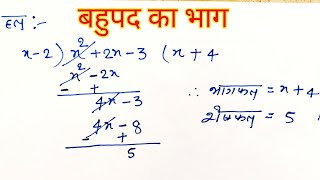 बहुपद का भाग
हल :-
x-2) x² + 2x - 3 (x + 4
x² - 2x
- +
4x - 3
4x - 8
- +
5
∴ भागफल = x + 4
शेषफल = 5